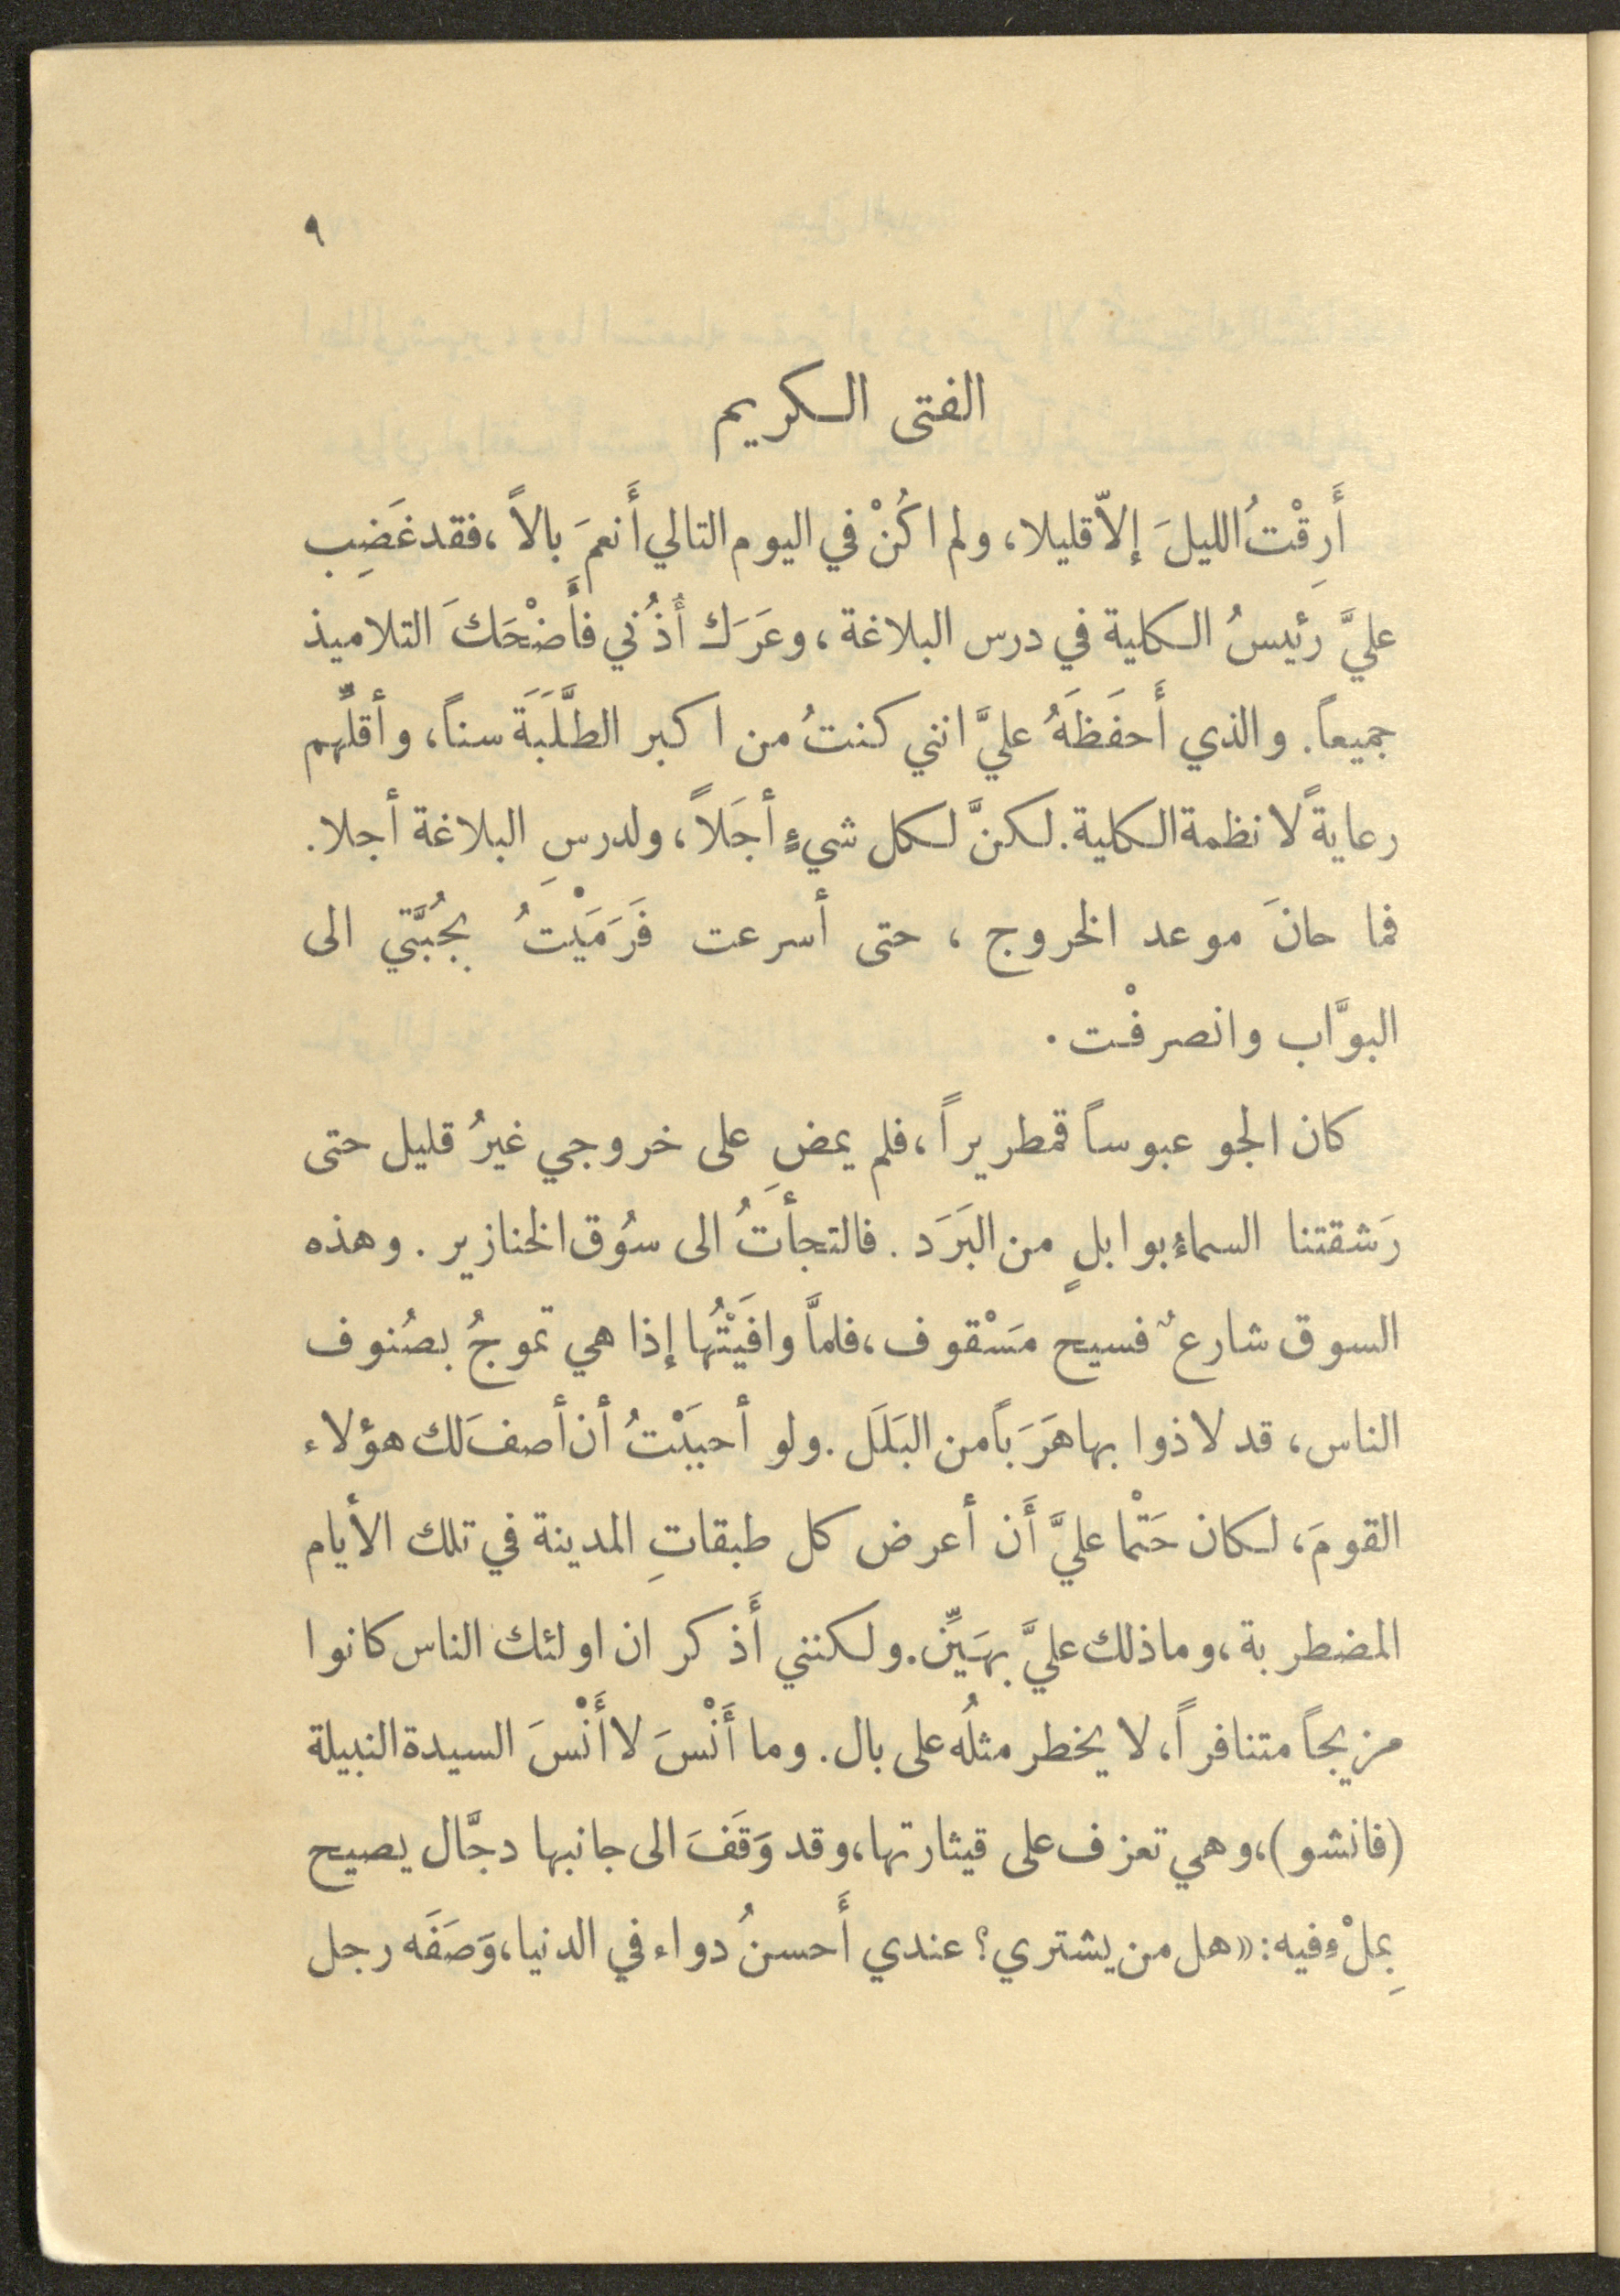 ٩
الفتى الكريم
أَرِقْتُ الليلَ إلاّ قليلا، ولم اكُنْ في اليوم التالي أَنعمَ بالاً، فقد غَضِب
عليَّ رئيسُ الكلية في درس البلاغة، وعَرَك أُذُني فأَضْحَكَ التلاميذ
جميعاً. والذي أَحفَظَهُ عليَّ انني كنتُ من اكبر الطَّلَبَة سناً، وأقلّهم
رعايةً لانظمة الكلية. لكنَّ لكل شيءٍ أجَلاً، ولدرسِ البلاغة أجلا.
فما حانَ موعد الخروج، حتى أسرعت فَرَمَيْتُ بجُبَّتي الى
البوَّاب وانصرفْت.
كان الجو عبوساً قمطريراً، فلم يمضِ على خروجي غيرُ قليل حتى
رَشقتنا السماءُ بوابلٍ من البَرَد. فالتجأتُ الى سوُق الخنازير. وهذه
السوق شارعٌ فسيح مَسْقوف، فلمَّا وافَيْتُها إذا هي تموجُ بصُنوف
الناس، قد لاذوا بها هَرَباً من البَلَل. ولو أحببْتُ أن أصفَ لك هؤلاء
القومَ، لكان حَتْما عليَّ أَن أعرض كل طبقاتِ المدينة في تلك الأيام
المضطربة، وما ذلك عليَّ بهَيِّن. ولكنني أَذكر ان اولئك الناس كانوا
مزيجاً متنافراً، لا يخطر مثلُه على بال. وما أَنْسَ لا أَنْسَ السيدة النبيلة
(فانشو)، وهي تعزف على قيثارتها، وقد وَقَفَ الى جانبها دجَّال يصيح
بِملْءِ فيه: «هل من يشتري؟ عندي أَحسنُ دواء في الدنيا، وَصَفَه رجل